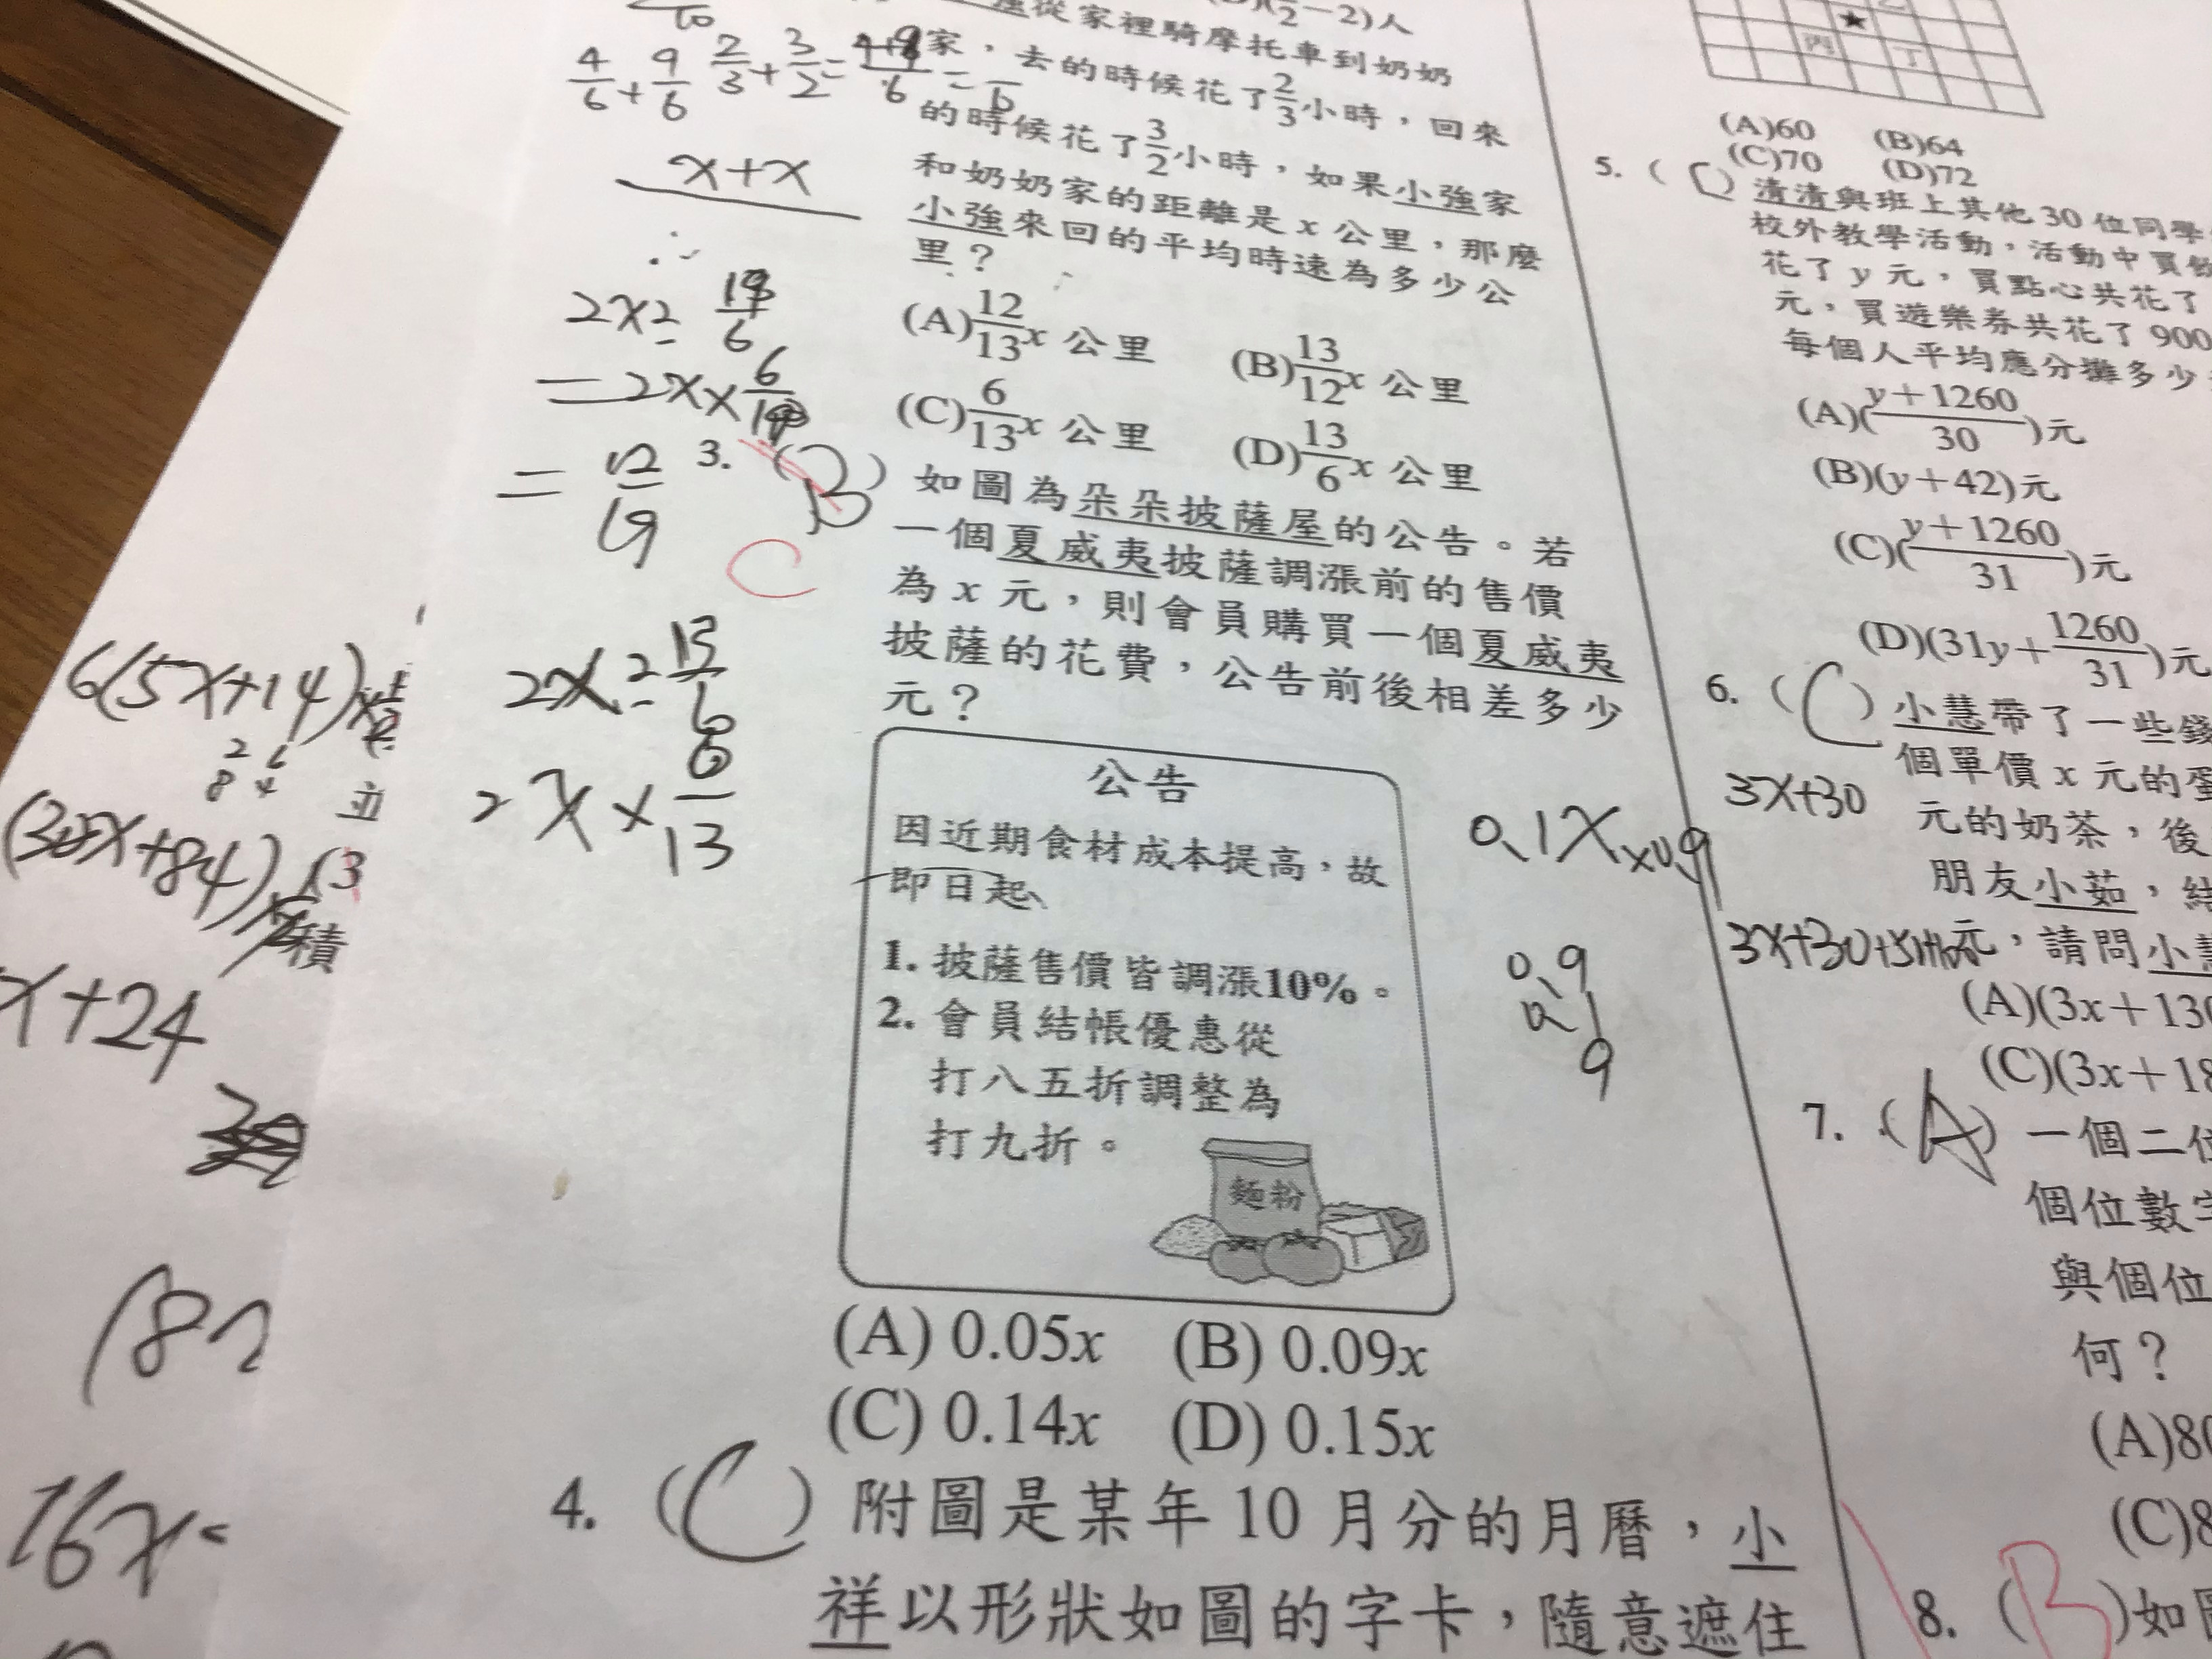 −2)人
從家裡騎摩托車到奶奶
家,去的時候花了2/3小時,回來
的時候花了3/2小時,如果小強家
和奶奶家的距離是 x 公里,那麼
小強來回的平均時速為多少公
里?
(A)12/13x 公里 (B)13/12x 公里
(C)6/13x 公里 (D)13/6x 公里
4/6+9/6 2/3+3/2=
x+x
2x÷
=2x×
=12/19
2x÷13/6
2x×6/13
6(5x+14)
84
x+24
16x
3. (B) 如圖為朵朵披薩屋的公告。若
C
一個夏威夷披薩調漲前的售價
為 x 元,則會員購買一個夏威夷
披薩的花費,公告前後相差多少
元?
公告
因近期食材成本提高,故
即日起、
1. 披薩售價皆調漲10%。
2. 會員結帳優惠從
打八五折調整為
打九折。
麵粉
0.1x×0.9
0.9
0.1
9
(A) 0.05x (B) 0.09x
(C) 0.14x (D) 0.15x
4. (C) 附圖是某年 10 月分的月曆,小
祥以形狀如圖的字卡,隨意遮住
★
丙 丁
(A)60 (B)64
(C)70 (D)72
5. ( ) 清清與班上其他 30 位同學
校外教學活動,活動中買飲
花了 y 元,買點心共花了
元,買遊樂券共花了 900
每個人平均應分攤多少
(A)(y+1260/30)元
(B)(y+42)元
(C)(y+1260/31)元
(D)(31y+1260/31)元
6. (C) 小慧帶了一些錢
個單價 x 元的蛋
3x+30
元的奶茶,後
朋友小茹,結
元,請問小慧
(A)(3x+130
(C)(3x+18
7. (A) 一個二位
個位數字
與個位
何?
(A)80
(C)8
8. (B)如圖